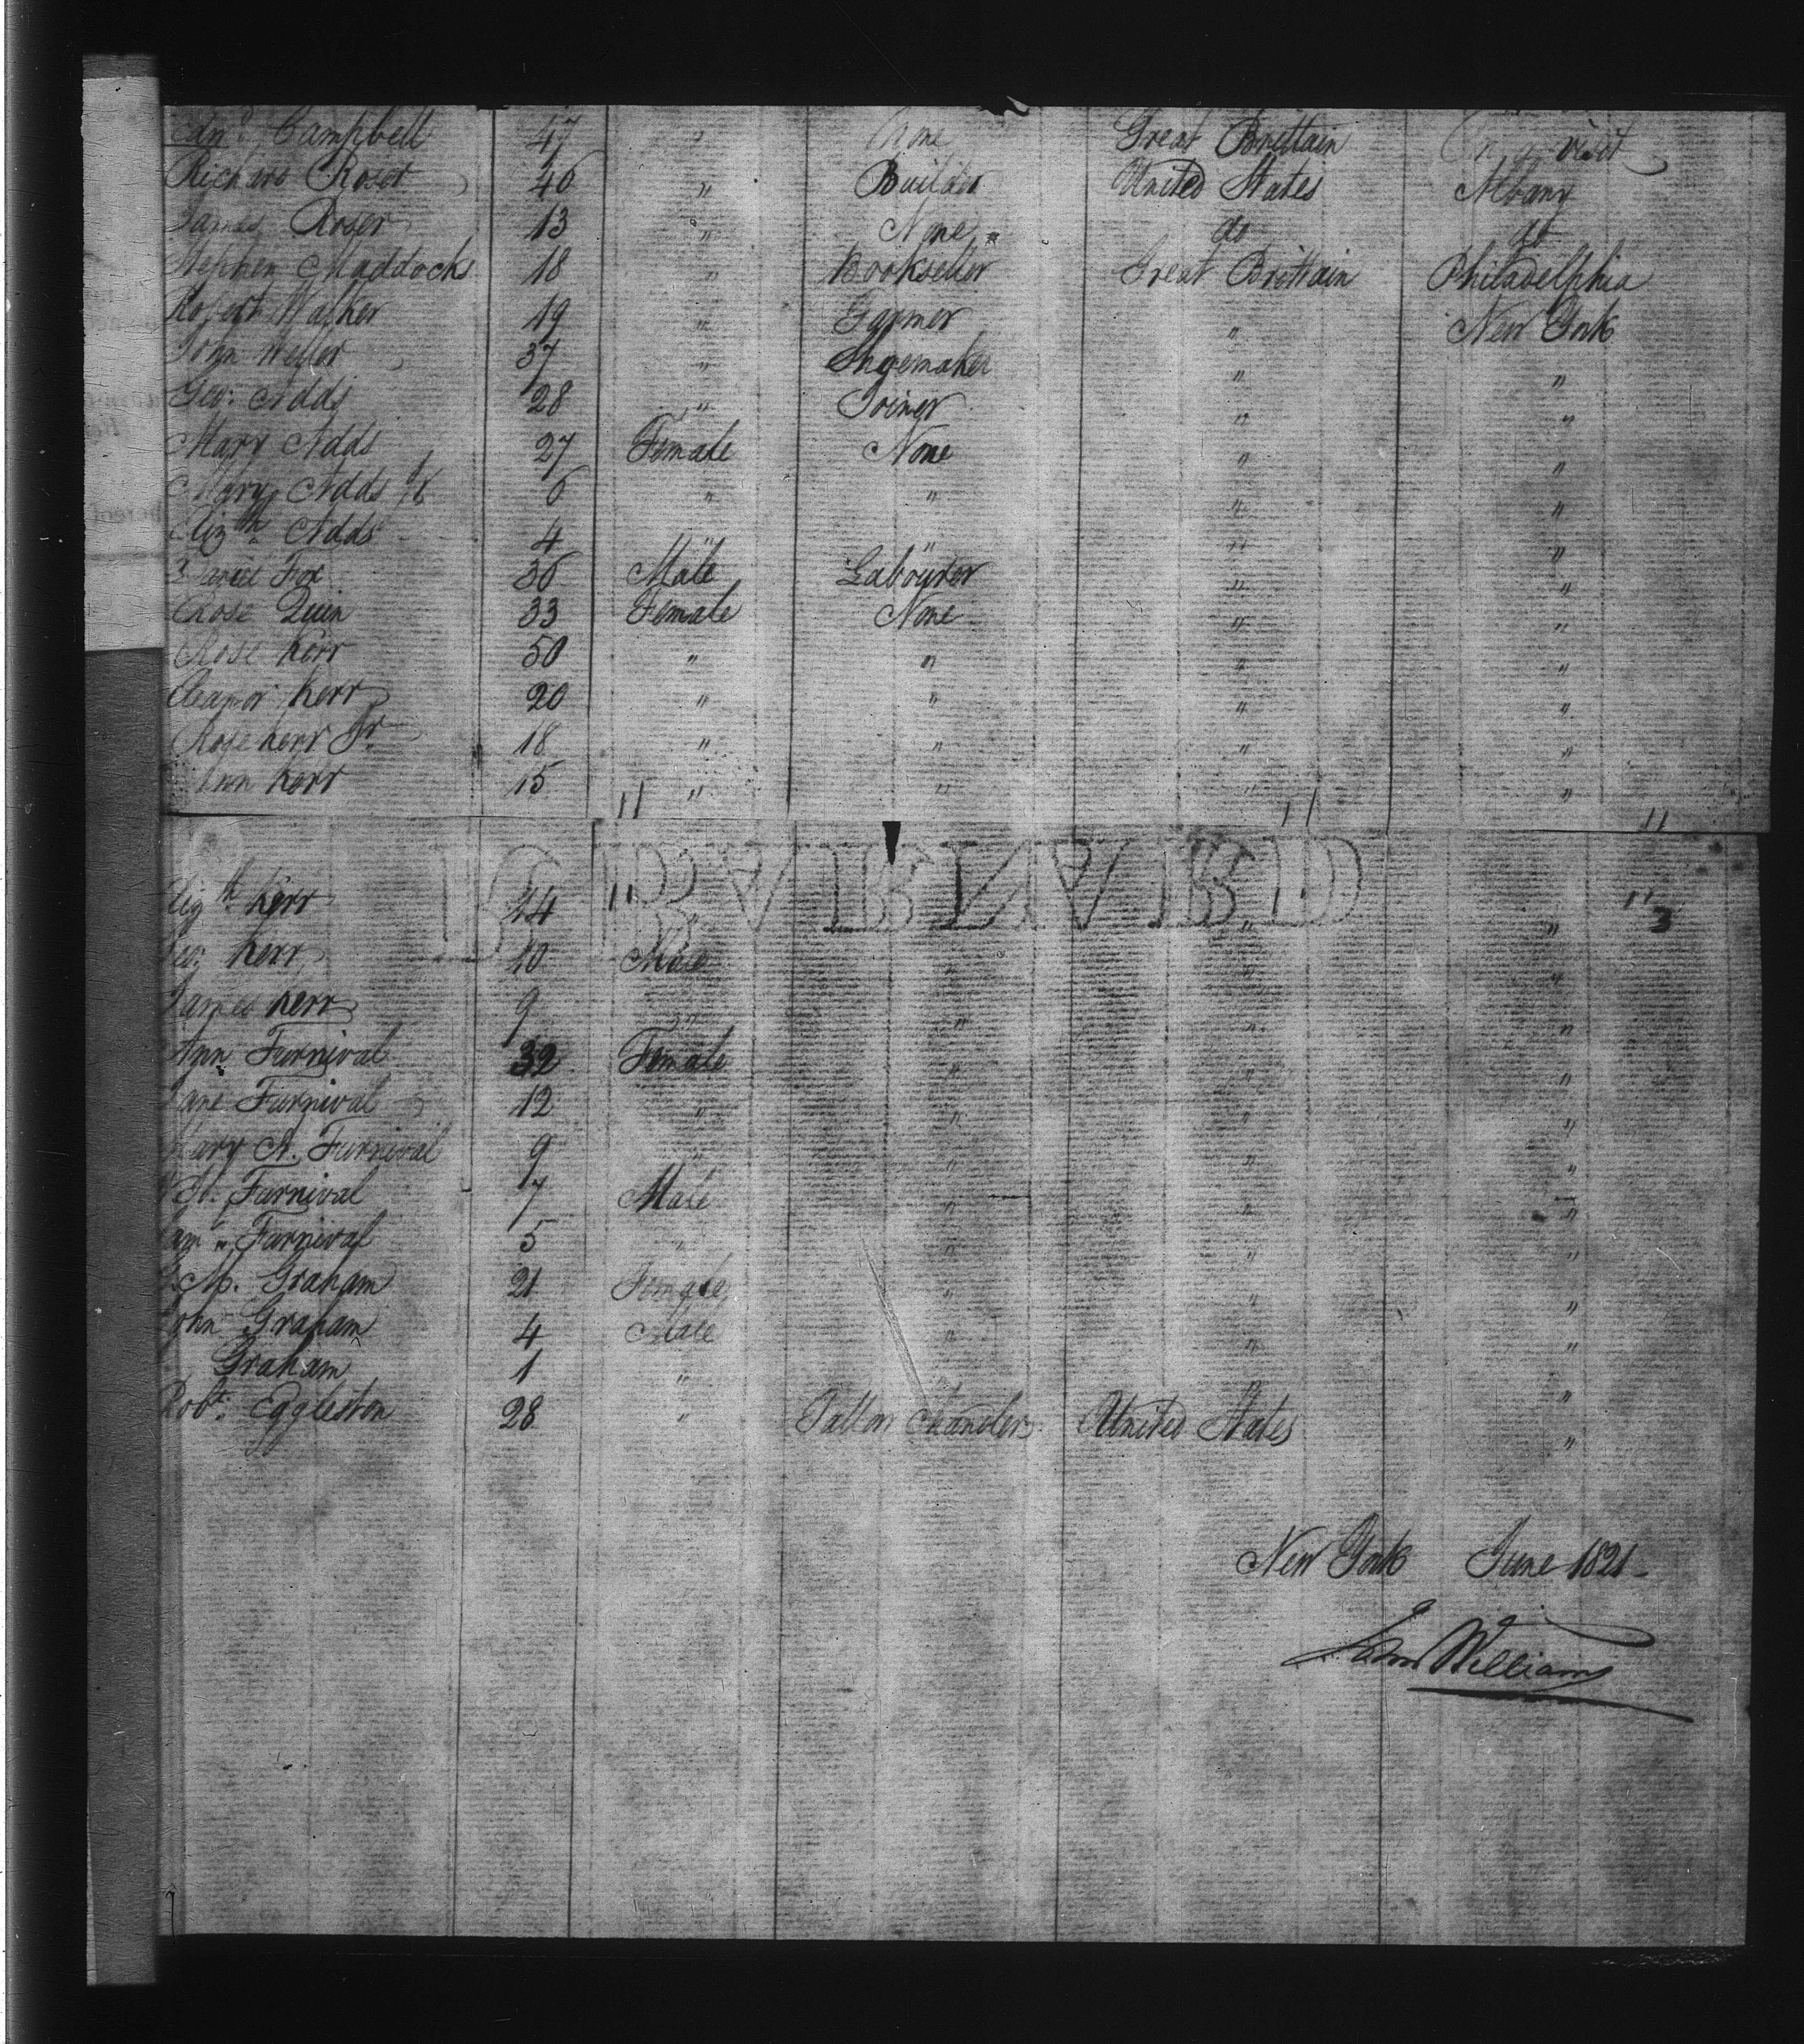 Edmd. Campbell 47 " None Great Brittain On a visit
Richard Roser 40 " Builder United States Albany
James Roser 13 " None do do
Stephen Maddocks 18 " Bookseller Great Brittain Philadelphia
Robert Walker 19 " Farmer " New York
John Weller 37 " Shoemaker " "
Geo: Adds 28 " Joiner " "
Mary Adds 27 Female None " "
Mary Adds Jr 6 " " " "
Elizth Adds 4 " " " "
Daniel Fox 36 Male Labourer " "
Rose Quin 33 Female None " "
Rose Kerr 50 " " " "
Eleanor Kerr 20 " " " "
Rose Kerr Jr 18 " " " "
Ann Kerr 15 " " " "
Elizth Kerr 14 " " " "
Geo: Kerr 10 Male " " "
James Kerr 9 " " " "
Ann Furnival 32 Female " " "
Jane Furnival 12 " " " "
Mary A. Furnival 9 " " " "
Furnival 7 Male " " "
Saml. Furnival 5 " " " "
M. Graham 21 Female " " "
John Graham 4 Male " " "
Graham 1 " " " "
Robt. Eggleston 28 " Tallow Chandler United States "
New York June 1821
John Williams